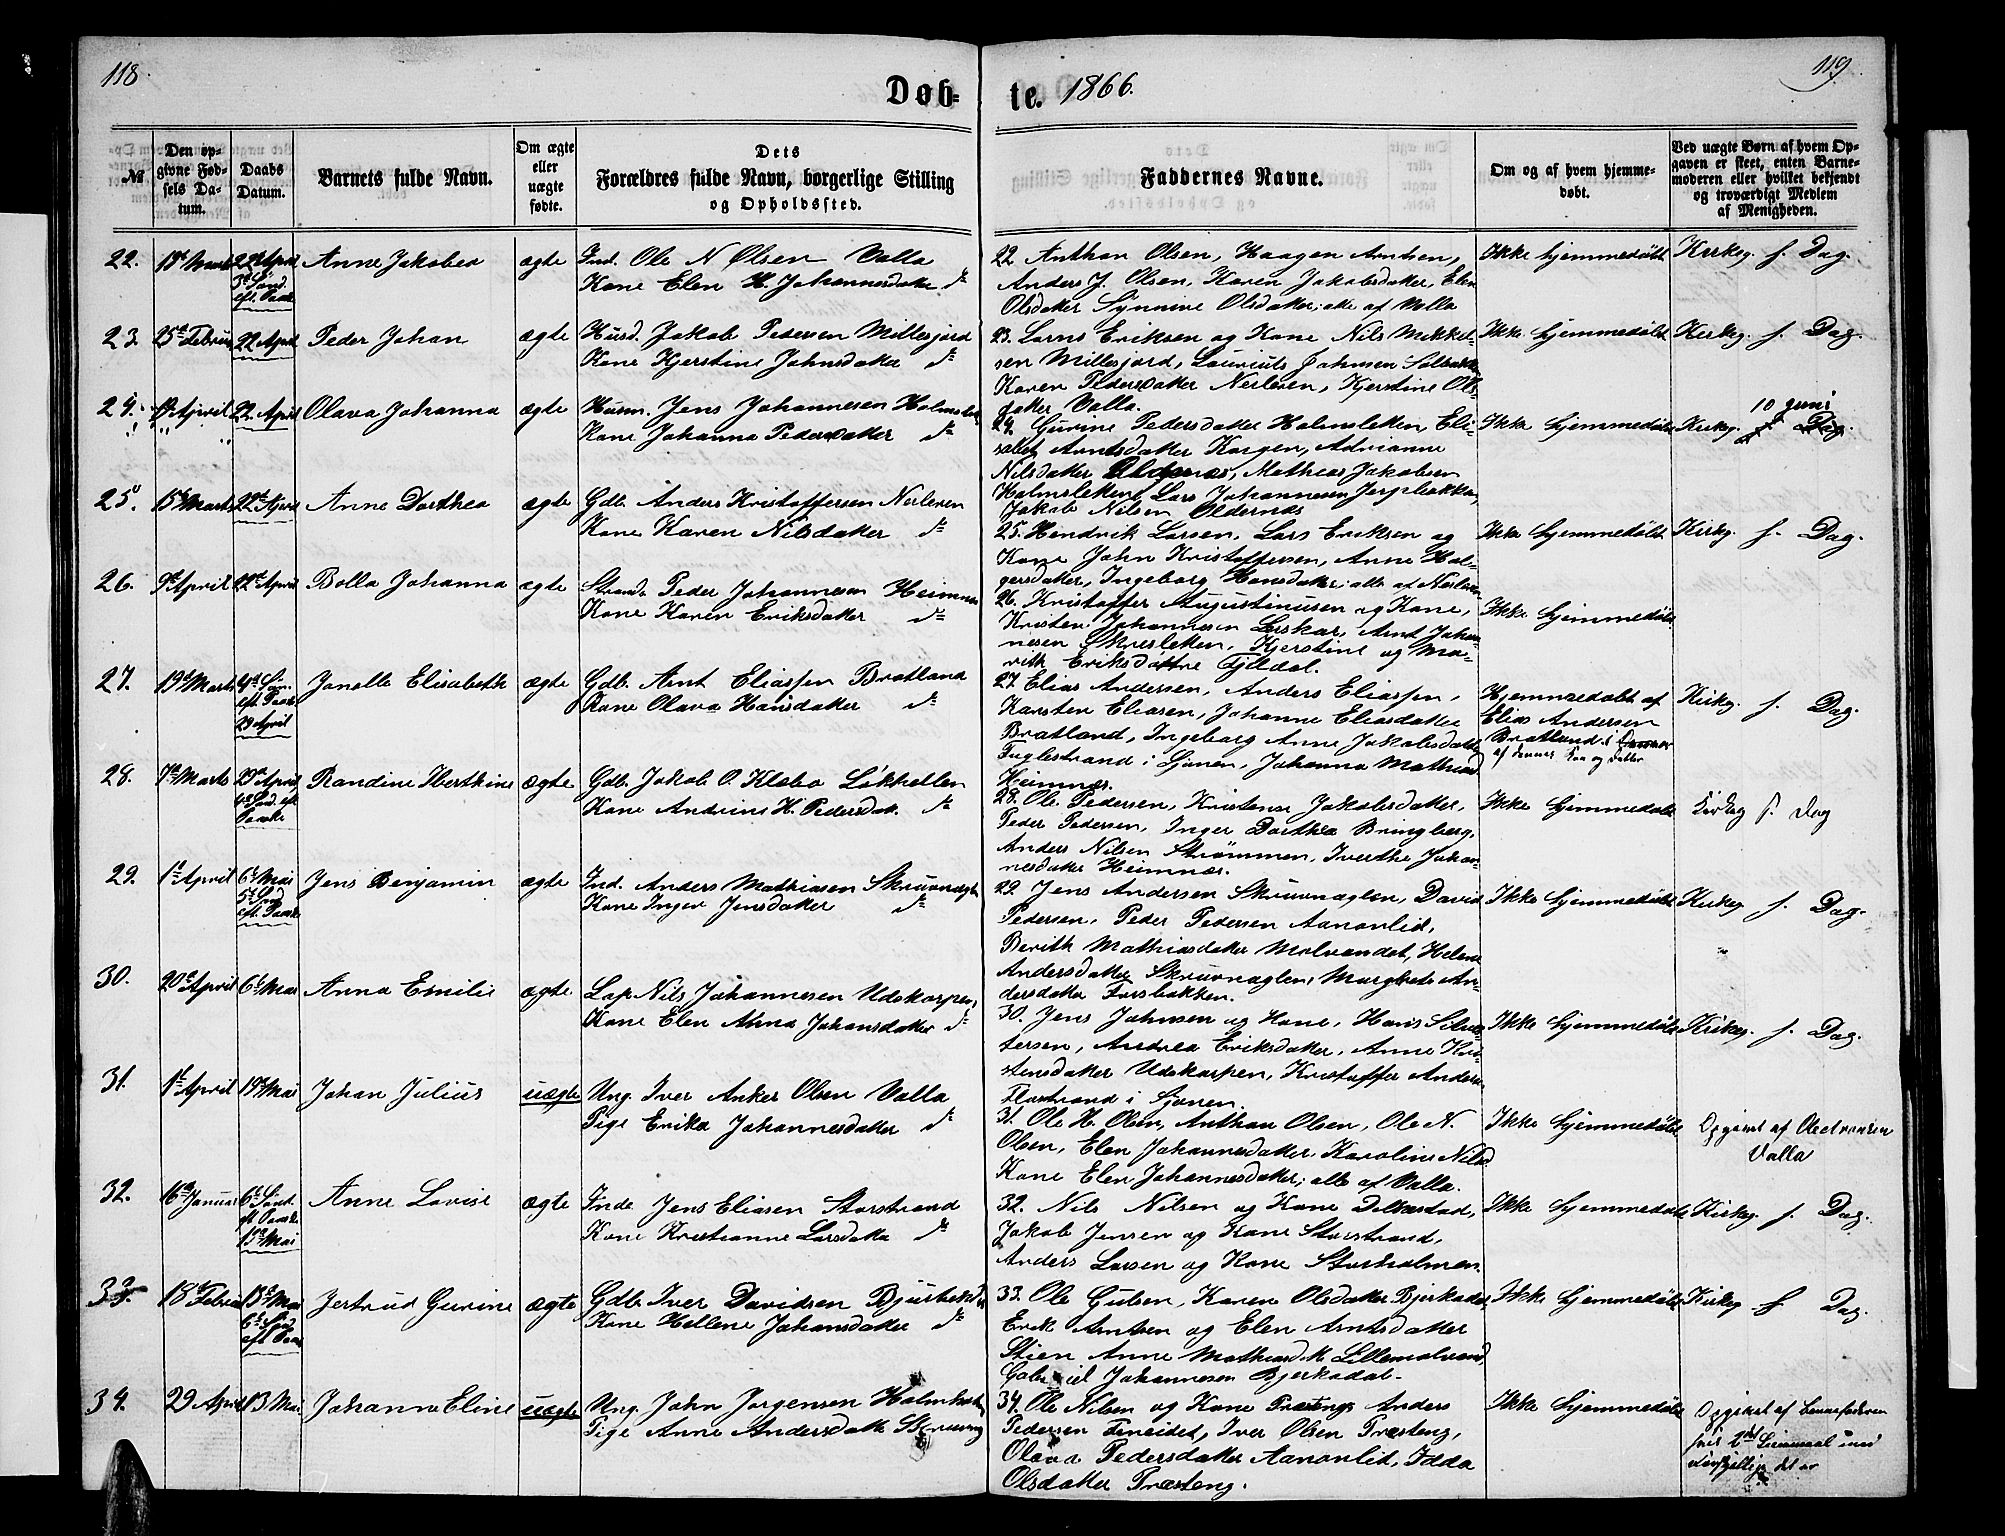 118.
Døb-
te. 1866.
119.
№
Den op-
givne Fød-
sels Da-
tum.
Daabs
Datum.
Barnets fulde Navn.
Om ægte
eller
uægte
fødte.
Dets
Forældres fulde Navn, borgerlige Stilling
og Opholdssted.
Faddernes Navne.
Om og af hvem hjemme-
døbt.
Ved uægte Børn af hvem Op-
gaven er skeet, enten Barne-
moderen eller hvilket bekjendt
og troværdigt Medlem
af Menigheden.
22. Marts 22 April Anne Jakobea ægte Ind. Ole N Olsen Valla
Kone Elen H. Johannesdatter
22 Anthon Olsen, Haagen Arntsen,
Anders J. Olsen, Karen Jakobsdatter, Elen
Olsdatter Synnive Olsdatter; alle af Valla
Ikke hjemmedøbt Kirkeg. s. Dag.
23. 25 Februar 22 April Peder Johan ægte Husd. Jakob Pedersen Millesjord
Kone Kjerstine Johnsdatter
23. Larns Eriksen og Kone Nils Mikkel-
sen Millesjord, Johnsen
Karen Pedersdatter Nerleven, Kjerstine Ols-
datter Valla.
Ikke hjemmedøbt Kirkeg. s. Dag.
24. April 22 April Olava Johanna ægte Husm. Jens Johannesen
Kone Johanna Pedersdatter
24. Gurine Pedersdatter Holmsletten, Eli-
sabet Arntsdatter Korgen, Adrianne
Nilsdatter Oldernæs, Mathias Jakobsen
Holmsletten, Lars Johannesen Jerpbakka,
Jakob Nilsen Oldernæs
Ikke hjemmedøbt Kirkeg. 10 Juni
25. 15 Marts 22 April Anne Dorthea ægte Gdb. Anders Kristoffersen Nerleven
Kone Karen Nilsdatter
25. Hendrik Larsen, Lars Eriksen og
Kone John Kristoffersen, Anne Hol-
gersdatter, Ingeborg Hansdatter; alle af Nerleven
Ikke hjemmedøbt Kirkeg. s. Dag.
26. 9 April 22 April Bolla Johanna ægte Strands. Peder Johannesen Heimnæs
Kone Karen Eriksdatter
26. Kristoffer Augustinusen og Kone,
Kristen Johannesen Leerskar, Arnt Johan-
nesen Skresletten, Kjerstine og Ma-
rith Eriksdøttre Fjeldal.
Ikke hjemmedøbt
27. 19 Marts 4de Søn.
eft. Paaske
29 April Janette Elisabeth ægte Gdb. Arnt Eliassen Bratland
Kone Olava Hansdatter
27. Elias Andersen, Anders Eliassen,
Karsten Eliasen, Johanne Eliasdatter
Bratland, Ingeborg Anne Jakobsdatter
Fuglestrand i Sjonen, Johanna Mathiasd
Heimnæs.
Hjemmedøbt af
Elias Andersen
Bratland
Kirkeg. s. Dag.
28. 7 Marts 29 April
4de Sønd. eft
Paaske Randine Iberthine ægte Gdb. Jakob O. Klobo Løkhellen
Kone Andrine H. Pedersdat.
28. Ole Pedersen, Kristense Jakobsdatter,
Peder Pedersen, Inger Dorthea Bringberg,
Anders Nilsen Strømmen, Iverthe Johan-
nesdatter Heimnæs.
Ikke hjemmedøbt Kirkeg s. Dag
29. 1 April 6 Mai
5 Sønd
eft. Paaske Jens Benjamin ægte Ind. Anders Mathiasen Skruvnaglen
Kone Inger Jensdatter
29. Jens Andersen Skruvnaglen, David
Pedersen, Peder Pedersen Aanonlid,
Berith Mathiasdatter Molvandet, Helene
Andersdatter Skruvnaglen, Margrete An-
dersdatter Forsbakken.
Ikke hjemmedøbt Kirkeg. s. Dag.
30. 20 April 6 Mai Anna Emilie ægte. Lap Nils Johannesen Udskarpen
Kone Elen Anna Johansdatter
30. Jens Johnsen og Kone, Hans Silves-
tersen, Andrea Eriksdatter, Anne Kri-
stensdatter Udskarpen, Kristoffer Anders.
Flostrand i Sjonen.
Ikke hjemmedøbt Kirkeg. s. Dag.
31. 1 April 19 Mai Johan Julius uægte Ung. Iver Anker Olsen Valla
Pige Erika Johannesdatter
31. Ole H. Olsen, Anthon Olsen, Ole N.
Olsen, Elen Johannesdatter Karoline Nilsd
Kone Elen Johannesdatter; alle af Valla.
Ikke hjemmedøbt Opgivet af
Valla
32. 16 Januar 6 Sønd.
eft Paaske
13 Mai Anne Lovise ægte Inde Jens Eliasen Storstrand
Kone Kristianne Larsdatter
32. Nils Nilsen og Kone Dilkestad,
Jakob Jensen og Kone Storstrand,
Anders Larsen og Kone Storholmen.
Ikke hjemmedøbt Kirkeg. s. Dag.
33. 18 Februar 13 Mai
6 Sønd
eft Paaske Jertrud Gurine ægte Gdb. Iver Davidsen
Kone Hellene Johansdatter
33. Ole Gulsen, Karen Olsdatter Bjerkadal
Erik Arntsen og Elen Arntsdatter
Stien Anne Mathiasd Lillemolvand,
Gabriel Johannesen Bjerkadal.
Ikke hjemmedøbt Kirkeg s Dag.
34. 29 April 13 Mai Johanna Eline uægte Ung. John Jørgensen
Pige Anne Andersdatter
34. Ole Nilsen og Kone Præsteng Anders
Pedersen Fineidet, Iver Olsen Præsteng,
Olava Pedersdatter Aanonlid, Idda
Olsdatter Præsteng.
Ikke hjemmedøbt Opgivet af Barnefaderen